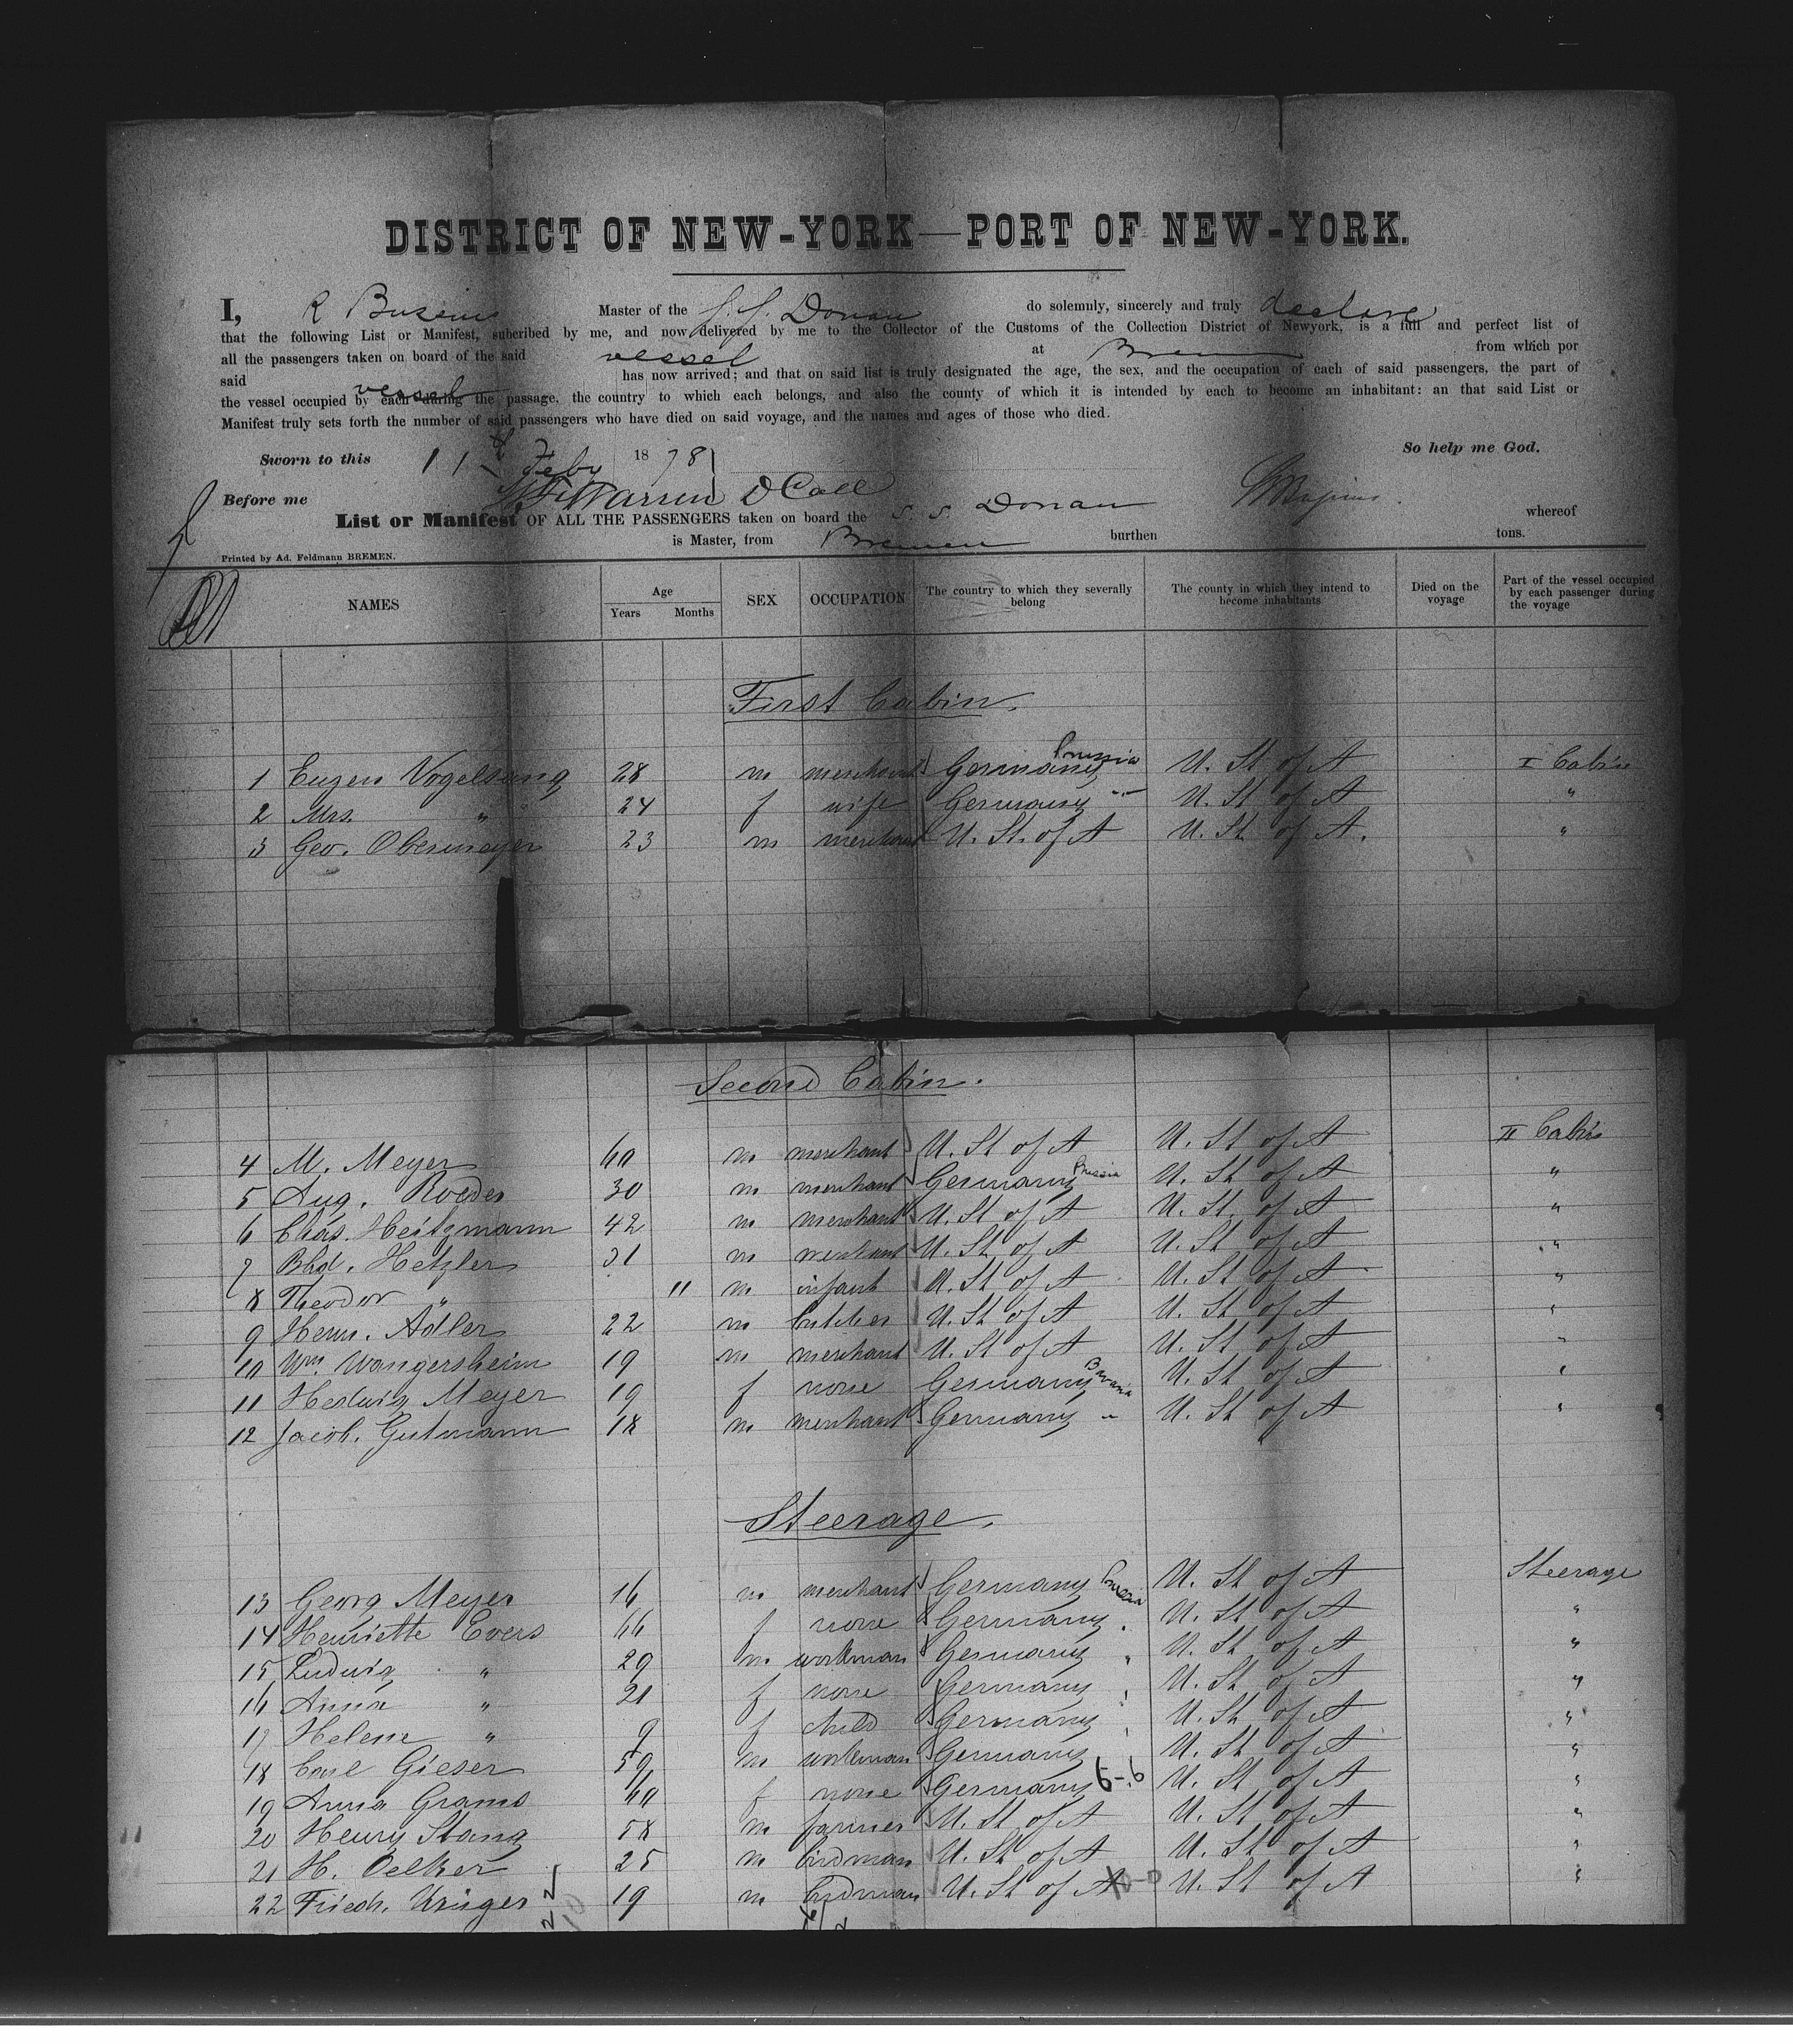 DISTRICT OF NEW-YORK—PORT OF NEW-YORK.
I, R Master of the S. S. Donau do solemnly, sincerely and truly declare
that the following List or Manifest, subcribed by me, and now delivered by me to the Collector of the Customs of the Collection District of Newyork, is a full and perfect list of
all the passengers taken on board of the said vessel at Bremen from which por
said vessel has now arrived; and that on said list is truly designated the age, the sex, and the occupation of each of said passengers, the part of
the vessel occupied by each during the passage, the country to which each belongs, and also the county of which it is intended by each to become an inhabitant: an that said List or
Manifest truly sets forth the number of said passengers who have died on said voyage, and the names and ages of those who died.
So help me God.
Sworn to this 11 Feby 1878
Before me
List or Manifest OF ALL THE PASSENGERS taken on board the S. S. Donau whereof
is Master, from Bremen burthen tons.
Printed by Ad. Feldmann BREMEN.
NAMES Age Years Months SEX OCCUPATION The country to which they severally belong The county in which they intend to become inhabitants Died on the voyage Part of the vessel occupied by each passenger during the voyage
First Cabin.
1 Eugen Vogelsang 28 m merchant Germany Prussia U. St of A I Cabin
2 Mrs. " 24 f wife Germany " U. St of A "
3 Geo. Obermeyer 23 m merchant U. St. of A U. St. of A. "
Second Cabin.
4 M. Meyer 60 m merchant U. St of A U. St of A II Cabin
5 Aug. Roeder 30 m merchant Germany Prussia U. St of A "
6 Chas. Heitzmann 42 m merchant U. St of A U. St. of A "
7 Bhd. Hetzler 31 m merchant U. St of A U. St of A "
8 Theodor " 11 m infant U. St of A U. St of A "
9 Henr. Adler 22 m butcher U. St of A U. St of A "
10 Wm. Wangersheim 19 m merchant U. St of A U. St of A "
11 Hedwig Meyer 19 f none Germany Bavaria U. St of A "
12 Jacob. Gutmann 18 m merchant Germany " U. St of A "
Steerage.
13 Georg Meyer 16 m merchant Germany Prussia U. St of A Steerage
14 Henriette Evers 66 f none Germany " U. St of A "
15 Ludwig " 29 m workman Germany " U. St of A "
16 Anna " 21 f none Germany " U. St of A "
17 Helene " 9 f child Germany " U. St of A "
18 Carl Gieser 59 m workman Germany U. St of A "
19 Anna Grams 60 f none Germany 6-.6 U. St of A "
20 Henry Stang 58 m farmer U. St of A U. St of A "
21 H. Oelker 25 m birdman U. St of A U. St of A "
22 Friedr. Krüger 19 m birdman U. St of A U. St of A "